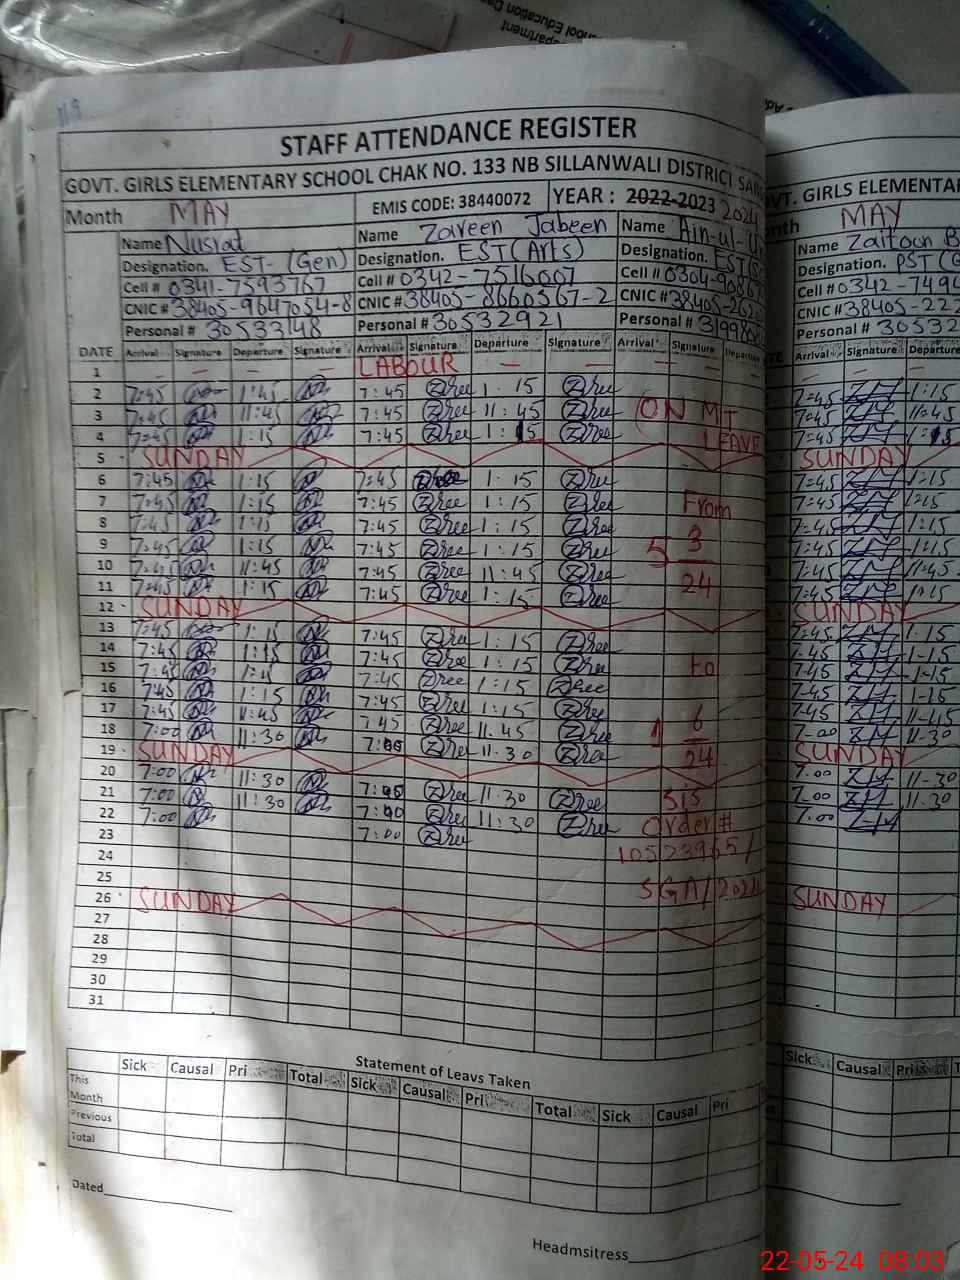 119
School Education De
Department
STAFF ATTENDANCE REGISTER
GOVT. GIRLS ELEMENTARY SCHOOL CHAK NO. 133 NB SILLANWALI DISTRICT SAR
Month MAY EMIS CODE: 38440072 YEAR : 2022-2023 2024
Name Nusrat Name Zareen Jabeen Name Ain-ul-
Designation. EST-(Gen) Designation. EST(Arts) Designation.
Cell # 0341-7593767 Cell # 0342-7516007 Cell # 0304-
CNIC # 38405-9647054-8 CNIC # 38405-8660567-2 CNIC # 38405-
Personal # 30533148 Personal # 30532921 Personal #
DATE Arrival Signature Departure Signature Arrival Signature Departure Signature Arrival Signature Departure
1 — — — — LABOUR — — — —
2 7:45 1:45 7:45 Zree 1:15 Zree
3 7:45 11:45 7:45 Zree 11:45 Zree ON MT
4 7:45 1:15 7:45 Zree 1:15 Zree LEAVE
5 SUNDAY
6 7:45 1:15 7:45 Zree 1:15 Zree
7 7:45 1:15 7:45 Zree 1:15 Zree From
8 7:45 1:15 7:45 Zree 1:15 Zree
9 7:45 1:15 7:45 Zree 1:15 Zree 5 3
10 7:45 11:45 7:45 Zree 11:45 Zree
11 7:45 1:15 7:45 Zree 1:15 Zree 24
12 SUNDAY
13 7:45 1:15 7:45 Zree 1:15 Zree
14 7:45 1:15 7:45 Zree 1:15 Zree to
15 7:45 1:15 7:45 Zree 1:15 Zree
16 7:45 1:15 7:45 Zree 1:15 Zree
17 7:45 11:45 7:45 Zree 11:45 Zree 1 6
18 7:00 11:30 7:00 Zree 11:30 Zree
19 SUNDAY 24
20 7:00 11:30 7:00 Zree 11:30 Zree
21 7:00 11:30 7:00 Zree 11:30 Zree SIS
22 7:00 7:00 Zree Order #
23
24 10523965/
25
26 SUNDAY SGA/2024
27
28
29
30
31
Statement of Leavs Taken
Sick Causal Pri Total Sick Causal Pri Total Sick Causal Pri
This
Month
Previous
Total
Dated
Headmsitress
VT. GIRLS ELEMENTA
nth MAY
Name Zaitoon B
Designation. PST
Cell # 0342-7494
CNIC # 38405-222
Personal # 30532
Arrival Signature Departure
7:45 1:15
7:45 11:45
7:45 1:15
SUNDAY
7:45 1:15
7:45 1:15
7:45 1:15
7:45 1:15
7:45 11:45
7:45 1:15
SUNDAY
7:45 1-15
7-45 1-15
7-45 1-15
7-45 1-15
7-45 11-45
7-00 11-30
SUNDAY
7.00 11-30
7.00 11.30
7.00
SUNDAY
Sick Causal Pri
22-05-24 08:03